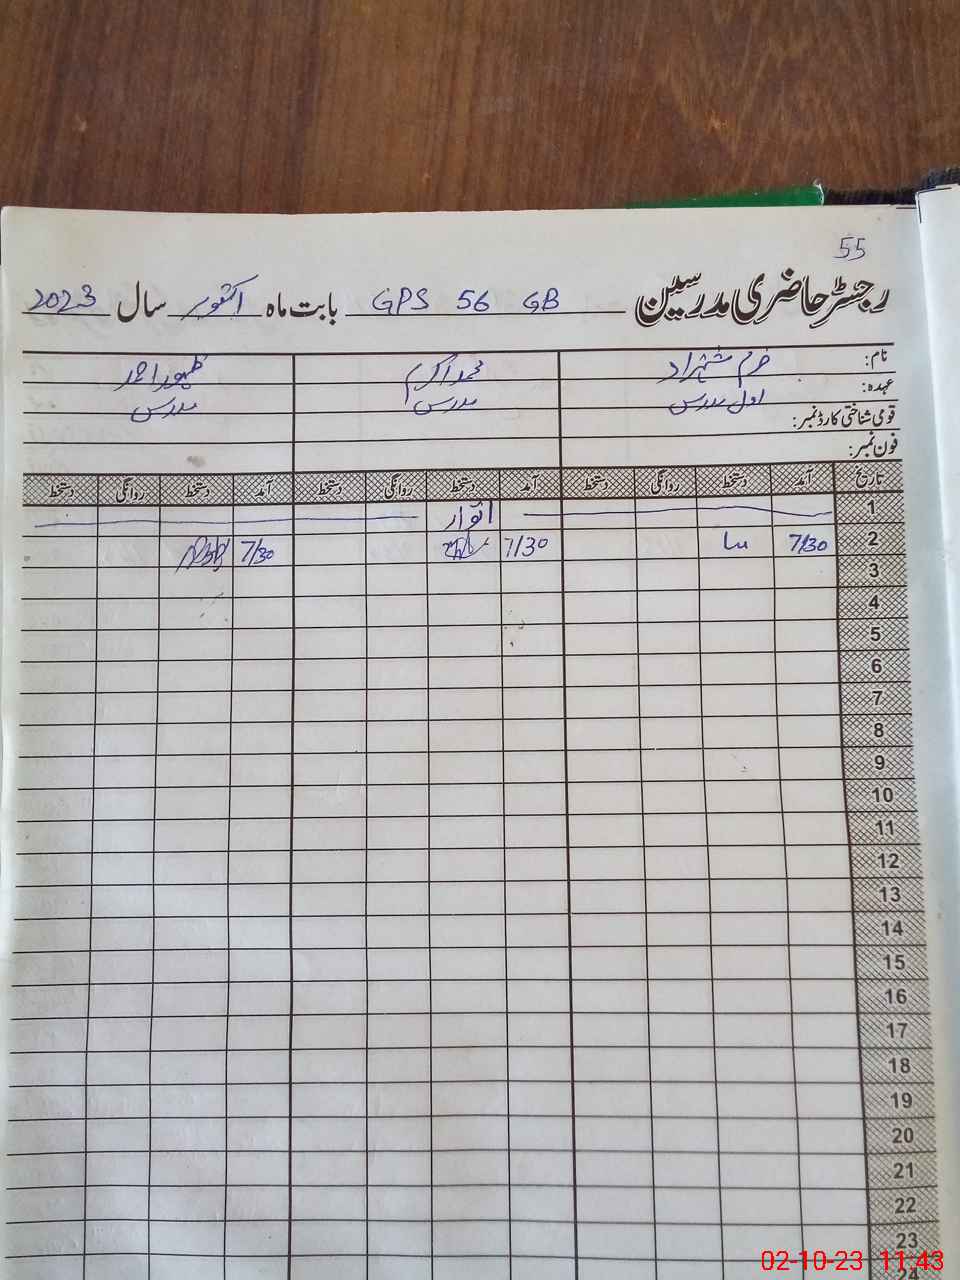 55
رجسٹر حاضری مدرسین GPS 56 GB بابت ماہ اکتوبر سال 2023
نام: خرم شہزاد محمد اکرم ظہور احمد
عہدہ: اول مدرس مدرس مدرس
قومی شناختی کارڈ نمبر:
فون نمبر:
تاریخ آمد دستخط روانگی دستخط آمد دستخط روانگی دستخط آمد دستخط روانگی دستخط
1 اتوار
2 7/30 7/30 7/30
3
4
5
6
7
8
9
10
11
12
13
14
15
16
17
18
19
20
21
22
23
24
02-10-23 11:43